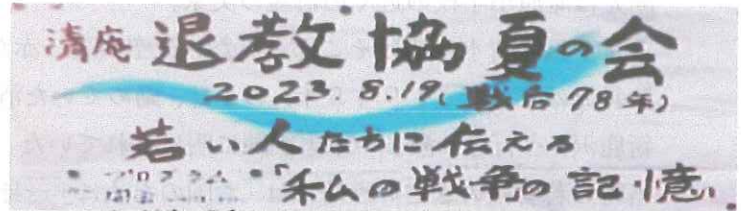 清庵 退教協 夏の会
2023.8.19(戦后78年)
若い人たちに伝える
「私の戦争の記憶